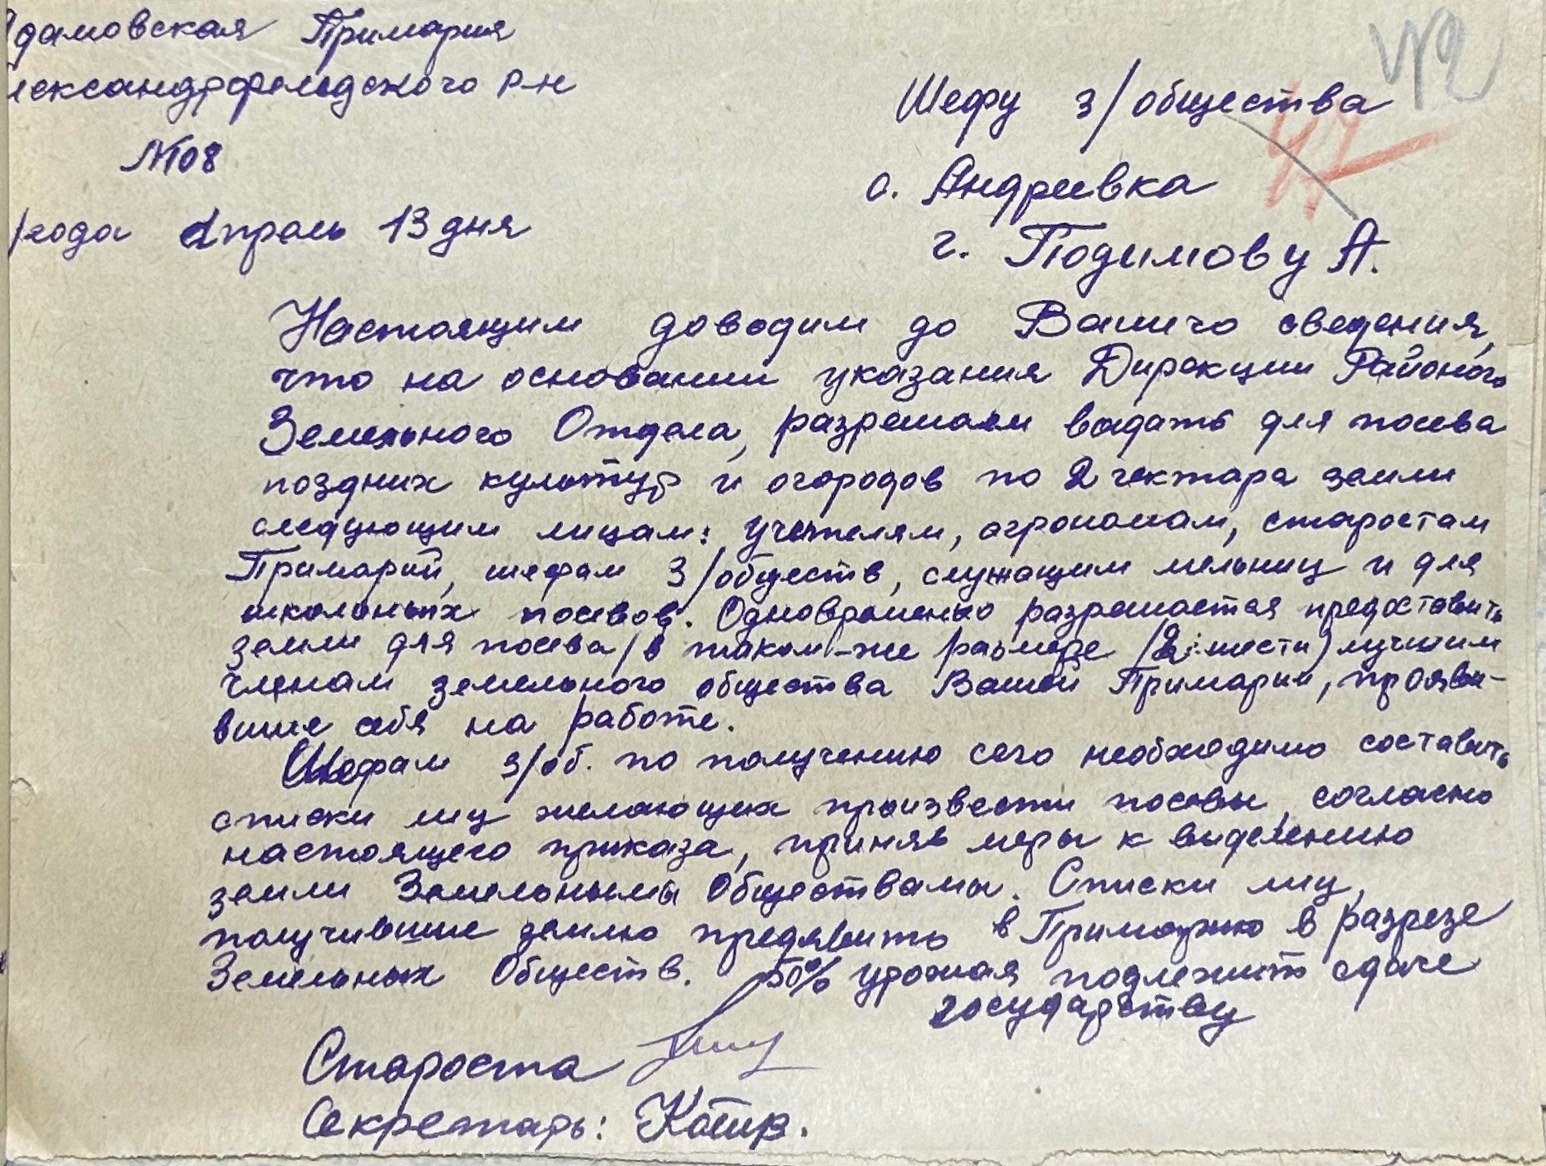 дамовская Примария
лександрфельдского р-н
№108
/года Апрель 13 дня
42
Шефу з/общества
с. Андреевка
г. Подимову А.
Настоящим доводим до Вашего сведения,
что на основании указания Дирекции Районого
Земельного Отдела, разрешаем выдать для посева
поздних культур и огородов по 2 гектара земли
следующим лицам: учителям, агрономам, старостам
Примарий, шефам З/обществ, служащим мельниц и для
школьных посевов. Одновременно разрешается предоставить
земли для посева /в таком-же размере /2 шести) лучшим
членам земельного общества Вашей Примарии, проявив-
вшие себя на работе.
Шефам з/об. по получению сего необходимо составить
списки лиц желающих произвести посевы, согласно
настоящего приказа, приняв меры к выделению
земли Земельными Обществами. Списки лиц,
получившие землю предявить в Примарию в разрезе
Земельных Обществ. 50% урожая подлежит сдаче
государству
Староста
Секретарь: